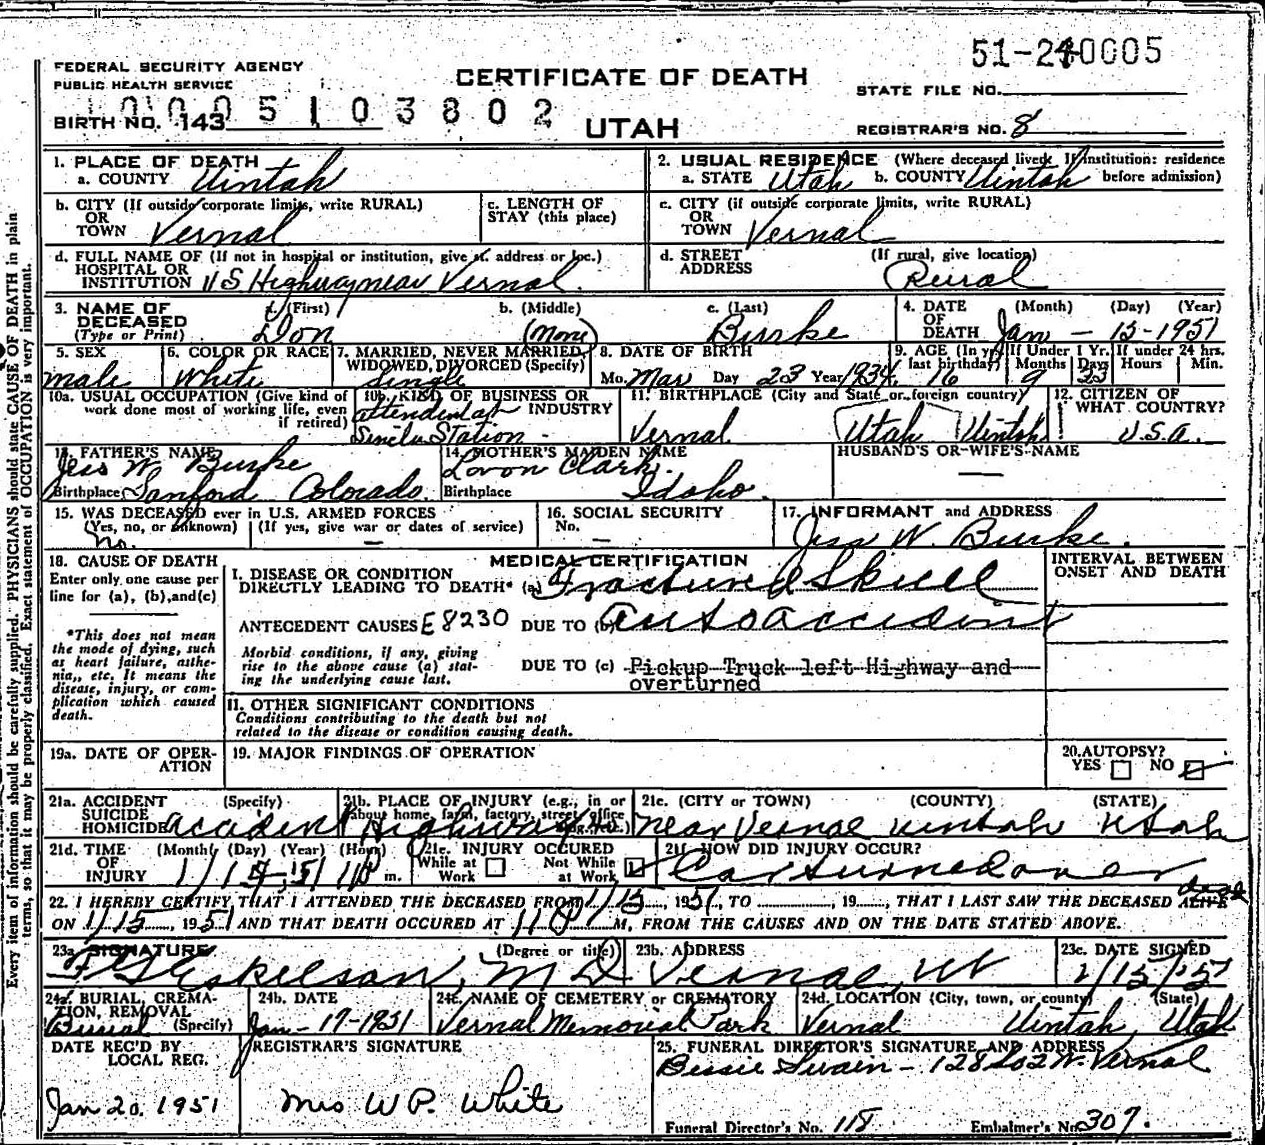 51-240005
FEDERAL SECURITY AGENCY
PUBLIC HEALTH SERVICE
CERTIFICATE OF DEATH
STATE FILE NO.
BIRTH NO. 143
UTAH
REGISTRAR'S NO. 8
1. PLACE OF DEATH
a. COUNTY Uintah
2. USUAL RESIDENCE (Where deceased lived. If institution: residence before admission)
a. STATE Utah b. COUNTY Uintah
b. CITY (If outside corporate limits, write RURAL)
OR
TOWN Vernal
c. LENGTH OF
STAY (this place)
c. CITY (if outside corporate limits, write RURAL)
OR
TOWN Vernal
d. FULL NAME OF (If not in hospital or institution, give st. address or loc.)
HOSPITAL OR
INSTITUTION US Highway near Vernal.
d. STREET
ADDRESS
(If rural, give location)
Rural
3. NAME OF
DECEASED
(Type or Print)
(First)
Don
b. (Middle)
(None)
c. (Last)
Burke
4. DATE
OF
DEATH
(Month) (Day) (Year)
Jan - 15 - 1951
5. SEX
male
6. COLOR OR RACE
White
7. MARRIED, NEVER MARRIED,
WIDOWED, DIVORCED (Specify)
Single
8. DATE OF BIRTH
Mo. Mar Day 23 Year 1934
9. AGE (In yrs. last birthday)
16
If Under 1 Yr.
Months Days
9 23
If under 24 hrs.
Hours Min.
10a. USUAL OCCUPATION (Give kind of
work done most of working life, even
if retired)
10b. KIND OF BUSINESS OR
INDUSTRY
attendent at
Station
11. BIRTHPLACE (City and State or foreign country)
Vernal Utah Uintah
12. CITIZEN OF
WHAT COUNTRY?
U.S.A.
13. FATHER'S NAME
Jess W. Burke
Birthplace Sanford Colorado
14. MOTHER'S MAIDEN NAME
Lovon Clark
Birthplace Idaho
HUSBAND'S OR WIFE'S NAME
—
15. WAS DECEASED ever in U.S. ARMED FORCES
(Yes, no, or unknown) (If yes, give war or dates of service)
No. —
16. SOCIAL SECURITY
No. —
17. INFORMANT and ADDRESS
Jess W. Burke.
18. CAUSE OF DEATH
Enter only one cause per
line for (a), (b), and (c)
*This does not mean
the mode of dying, such
as heart failure, asthe-
nia, etc. It means the
disease, injury, or com-
plication which caused
death.
MEDICAL CERTIFICATION
INTERVAL BETWEEN
ONSET AND DEATH
I. DISEASE OR CONDITION
DIRECTLY LEADING TO DEATH* (a) Fractured Skull
ANTECEDENT CAUSES E8230 DUE TO (b) auto accident
Morbid conditions, if any, giving
rise to the above cause (a) stat-
ing the underlying cause last.
DUE TO (c) Pickup Truck left Highway and
overturned
II. OTHER SIGNIFICANT CONDITIONS
Conditions contributing to the death but not
related to the disease or condition causing death.
19a. DATE OF OPER-
ATION
19. MAJOR FINDINGS OF OPERATION
20. AUTOPSY?
YES NO
21a. ACCIDENT (Specify)
SUICIDE
HOMICIDE accident
21b. PLACE OF INJURY (e.g., in or
about home, farm, factory, street, office
Highway 40
21c. (CITY or TOWN) (COUNTY) (STATE)
near Vernal uintah Utah
21d. TIME (Month) (Day) (Year) (Hour)
OF
INJURY
21e. INJURY OCCURED
While at Work
Not While at Work
21f. HOW DID INJURY OCCUR?
Car turned over
22. I HEREBY CERTIFY THAT I ATTENDED THE DECEASED FROM 1/15, 1951, TO , 19 , THAT I LAST SAW THE DECEASED ALIVE dead
ON 1/15, 1951 AND THAT DEATH OCCURED AT M, FROM THE CAUSES AND ON THE DATE STATED ABOVE.
23a. SIGNATURE (Degree or title)
Eskelson, M D
23b. ADDRESS
Vernal, Ut
23c. DATE SIGNED
1/15/51
24a. BURIAL, CREMA-
TION, REMOVAL
Burial (Specify)
24b. DATE
Jan - 17 - 1951
24c. NAME OF CEMETERY or CREMATORY
Vernal Memorial Park
24d. LOCATION (City, town, or county) (State)
Vernal Uintah, Utah
DATE REC'D BY
LOCAL REG.
Jan 20. 1951
REGISTRAR'S SIGNATURE
Mrs W P. White
25. FUNERAL DIRECTOR'S SIGNATURE AND ADDRESS
Bessie Swain - Vernal
Funeral Director's No. 118 Embalmer's No. 307.
Every item of information should be carefully supplied. PHYSICIANS should state CAUSE OF DEATH in plain
terms, so that it may be properly classified. Exact statement of OCCUPATION is very important.